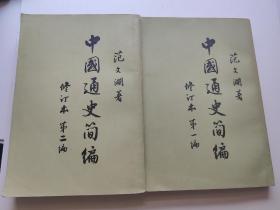 范文瀾著
中國通史簡編
修订本 第一编
范文瀾著
中國通史簡編
修订本 第二编